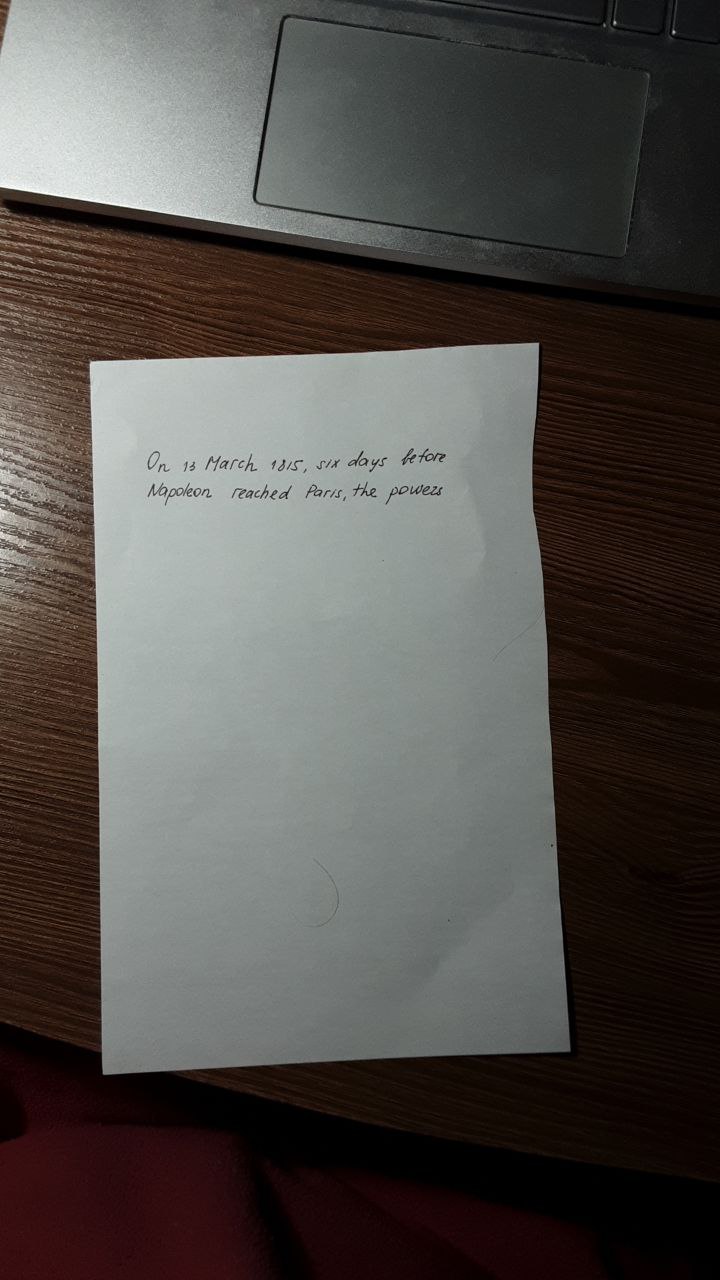 On 13 March 1815, six days before
Napoleon reached Paris, the powers